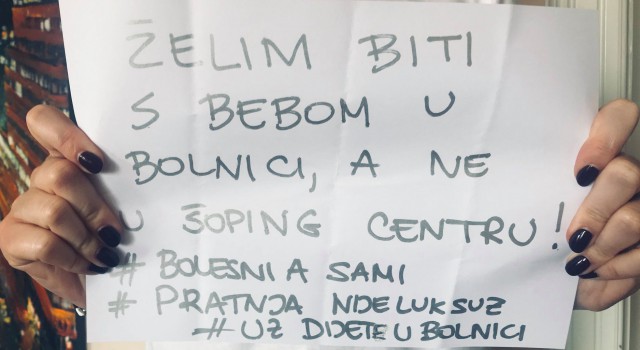 ŽELIM BITI
S BEBOM U
BOLNICI, A NE
U ŠOPING CENTRU!
# BOLESNI A SAMI
# PRATNJA NIJE LUKSUZ
# UZ DIJETE U BOLNICI